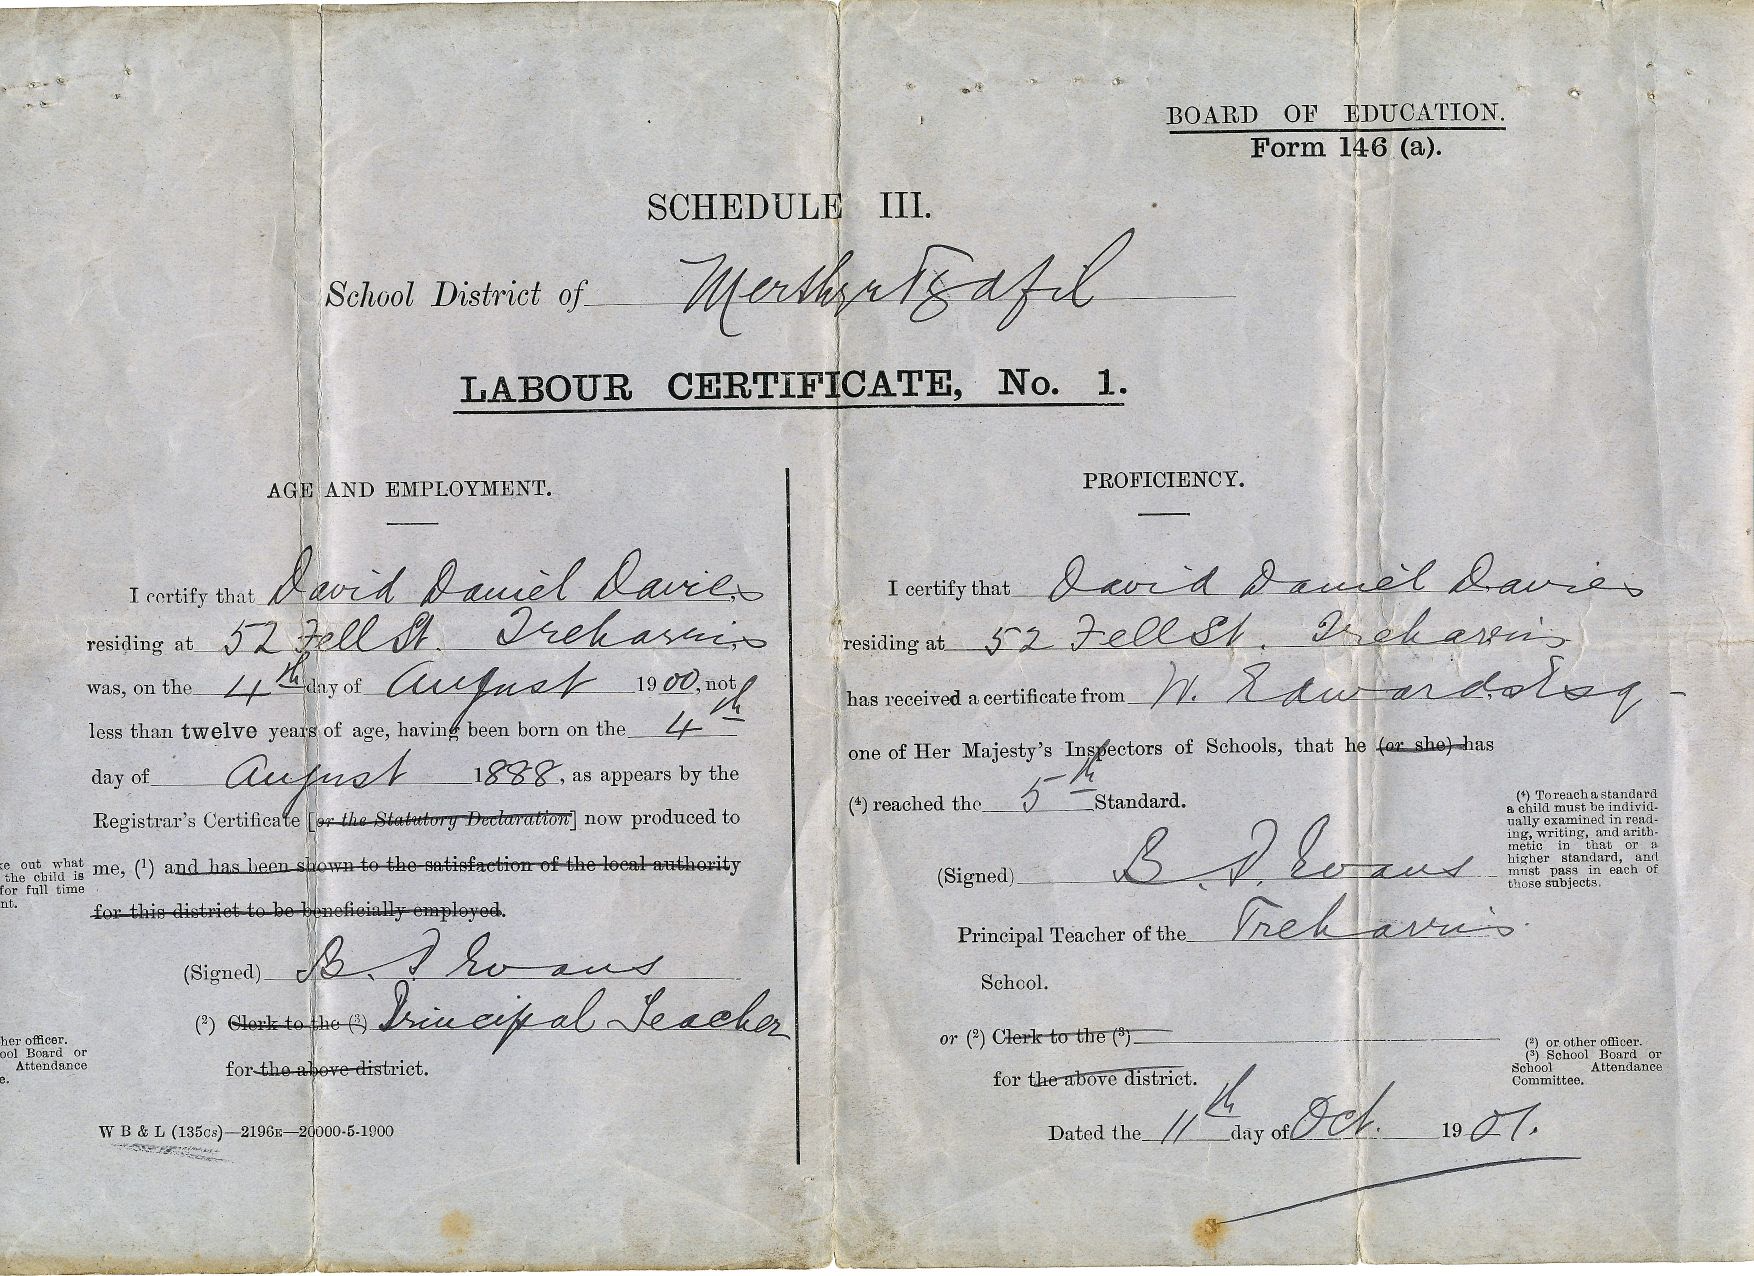 BOARD OF EDUCATION.
Form 146 (a).
SCHEDULE III.
School District of Merthyr Tydfil
LABOUR CERTIFICATE, No. 1.
AGE AND EMPLOYMENT.
I certify that David Daniel Davies
residing at 52 Fell St. Treharris
was, on the 4th day of August 1900, not
less than twelve years of age, having been born on the 4th
day of August 1888, as appears by the
Registrar's Certificate [or the Statutory Declaration] now produced to
me, (1) and has been shown to the satisfaction of the local authority
for this district to be beneficially employed.
(Signed) B. P. Evans
(2) Clerk to the (3) Principal Teacher
for the above district.
W B & L (135cs)—2196E—20000-5-1900
out what
the child is
for full time
nt.
her officer.
ool Board or
Attendance
e.
PROFICIENCY.
I certify that David Daniel Davies
residing at 52 Fell St. Treharris
has received a certificate from W. Edwards Esq
one of Her Majesty's Inspectors of Schools, that he (or she) has
(4) reached the 5th Standard.
(Signed) B. P. Evans
Principal Teacher of the Treharris
School.
or (2) Clerk to the (3)
for the above district.
Dated the 11th day of Oct. 1901.
(4) To reach a standard
a child must be individ-
ually examined in read-
ing, writing, and arith-
metic in that or a
higher standard, and
must pass in each of
those subjects.
(2) or other officer.
(3) School Board or
School Attendance
Committee.